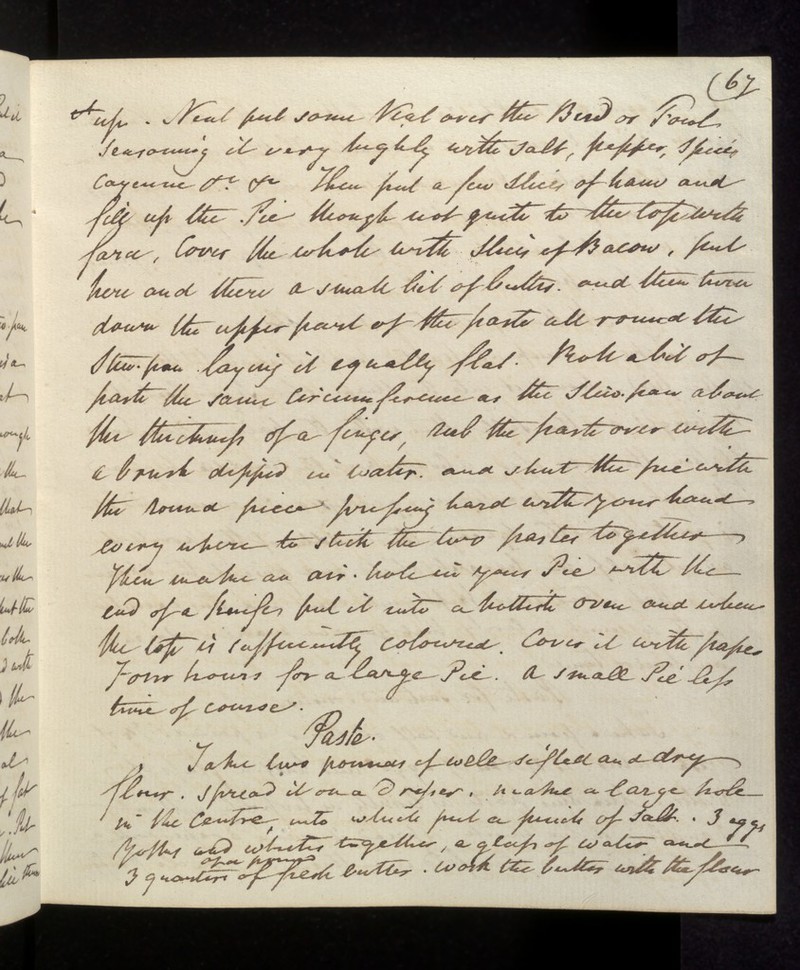 (67
it up. Next put some Veal over the Bird or Fowl
seasoning it very highly with salt, pepper, spices
Cayenne &c. &c Then put a few slices of ham and
fill up the Pie though not quite to the top with
farce, Cover the whole with slices of Bacon, put
here and there a small bit of butter. and then turn
down the upper part of the paste all round the
Stew-pan laying it equally flat. Roll a bit of
paste the same circumference as the Stew-pan about
the thickness of a finger, rub the paste over with
a brush dipped in water. and shut the pie with
the round piece pressing hard with your hand
every where to stick the two pastes together
Then make an air-hole in your Pie with the
end of a knife, put it into a hottish oven and when
the top is sufficiently coloured. Cover it with paper
Four hours for a large Pie. a small Pie less
time of course.
Paste.
Take two pounds of well sifted and dry
flour. spread it on a Dresser. make a large hole
in the Centre, into which put a pinch of Salt. 3 eggs
Yolks and whites together, a glass of water and
of a pound
3 quarters of fresh butter. work the butter with the flour